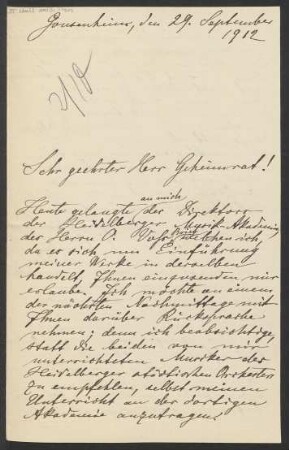 Gonsenheim, den 29. September
1912
2/10
Sehr geehrter Herr Geheimrat!
an mich
Heute gelangte der Direktor
der Heidelberger Musik-Akademie
der Herrn O. welchen ich,
da es sich um Einführung
meiner Werke in derselben
handelt, Ihnen einzusenden mir
erlaube. Ich möchte an einem
der nächsten Nachmittage mit
Ihnen darüber Rücksprache
nehmen, denn ich beabsichtige,
statt die beiden von mir
unterrichteten Musiker des
Heidelberger städtischen Orchesters
zu empfehlen, selbst meinen
Unterricht an der dortigen
Akademie anzutragen.